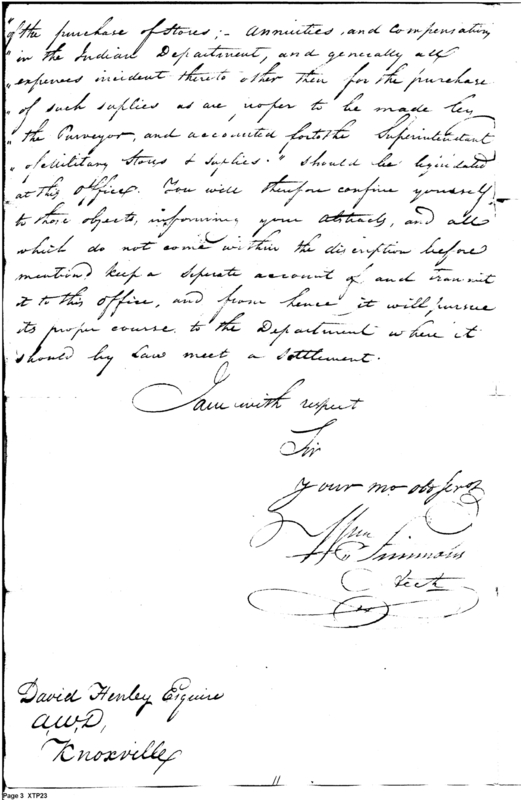 "of the purchase of Stores; - Annuities, and Compensations
"in the Indian Department, and generally all
"expences incident thereto other then for the purchase
"of such suplies as are proper to be made by
"the Purveyor, and accounted for to the Superintendant
"of Military Stores & Suplies." should be liquidated
at this Office. You will therefore confine yourself
to those objects, in forming your Abstracts, and all
which do not come within the discription before
mention'd keep a seperate account of and transmit
it to this office, and from hence it will pursue
its proper course to the Department where it
should by Law meet a Settlement.
I am with respect
Sir
Your mo. obd Servt
Wm Simmons
Acct
David Henley Esquire
A,W,D,
Knoxville
11
Page 3 XTP23